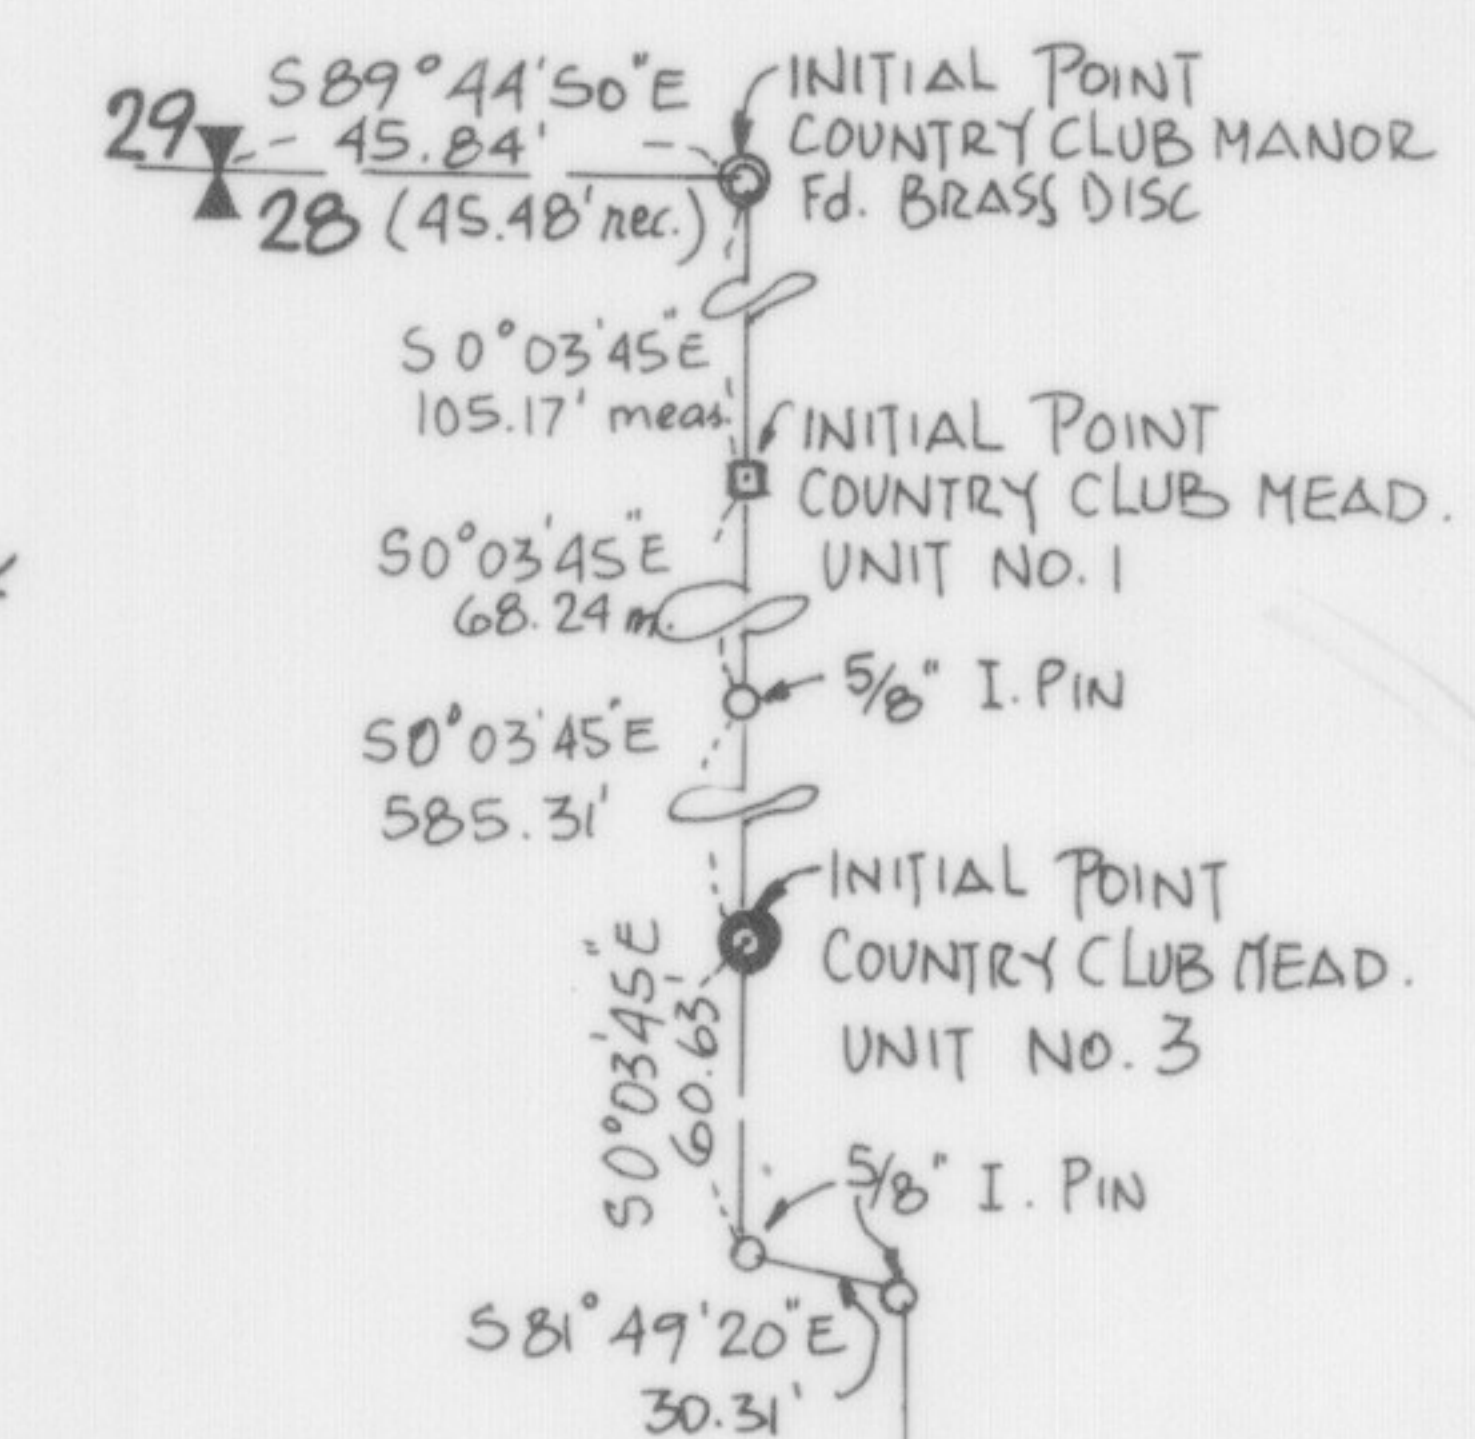 S89°44'50"E
29
45.84'
28 (45.48' rec.)
INITIAL POINT
COUNTRY CLUB MANOR
Fd. BRASS DISC
S0°03'45"E
105.17' meas.
INITIAL POINT
COUNTRY CLUB MEAD.
UNIT NO. 1
S0°03'45"E
68.24 m.
5/8" I. PIN
S0°03'45"E
585.31'
INITIAL POINT
COUNTRY CLUB MEAD.
UNIT NO. 3
S0°03'45"E
60.63'
5/8" I. PIN
S81°49'20"E
30.31'